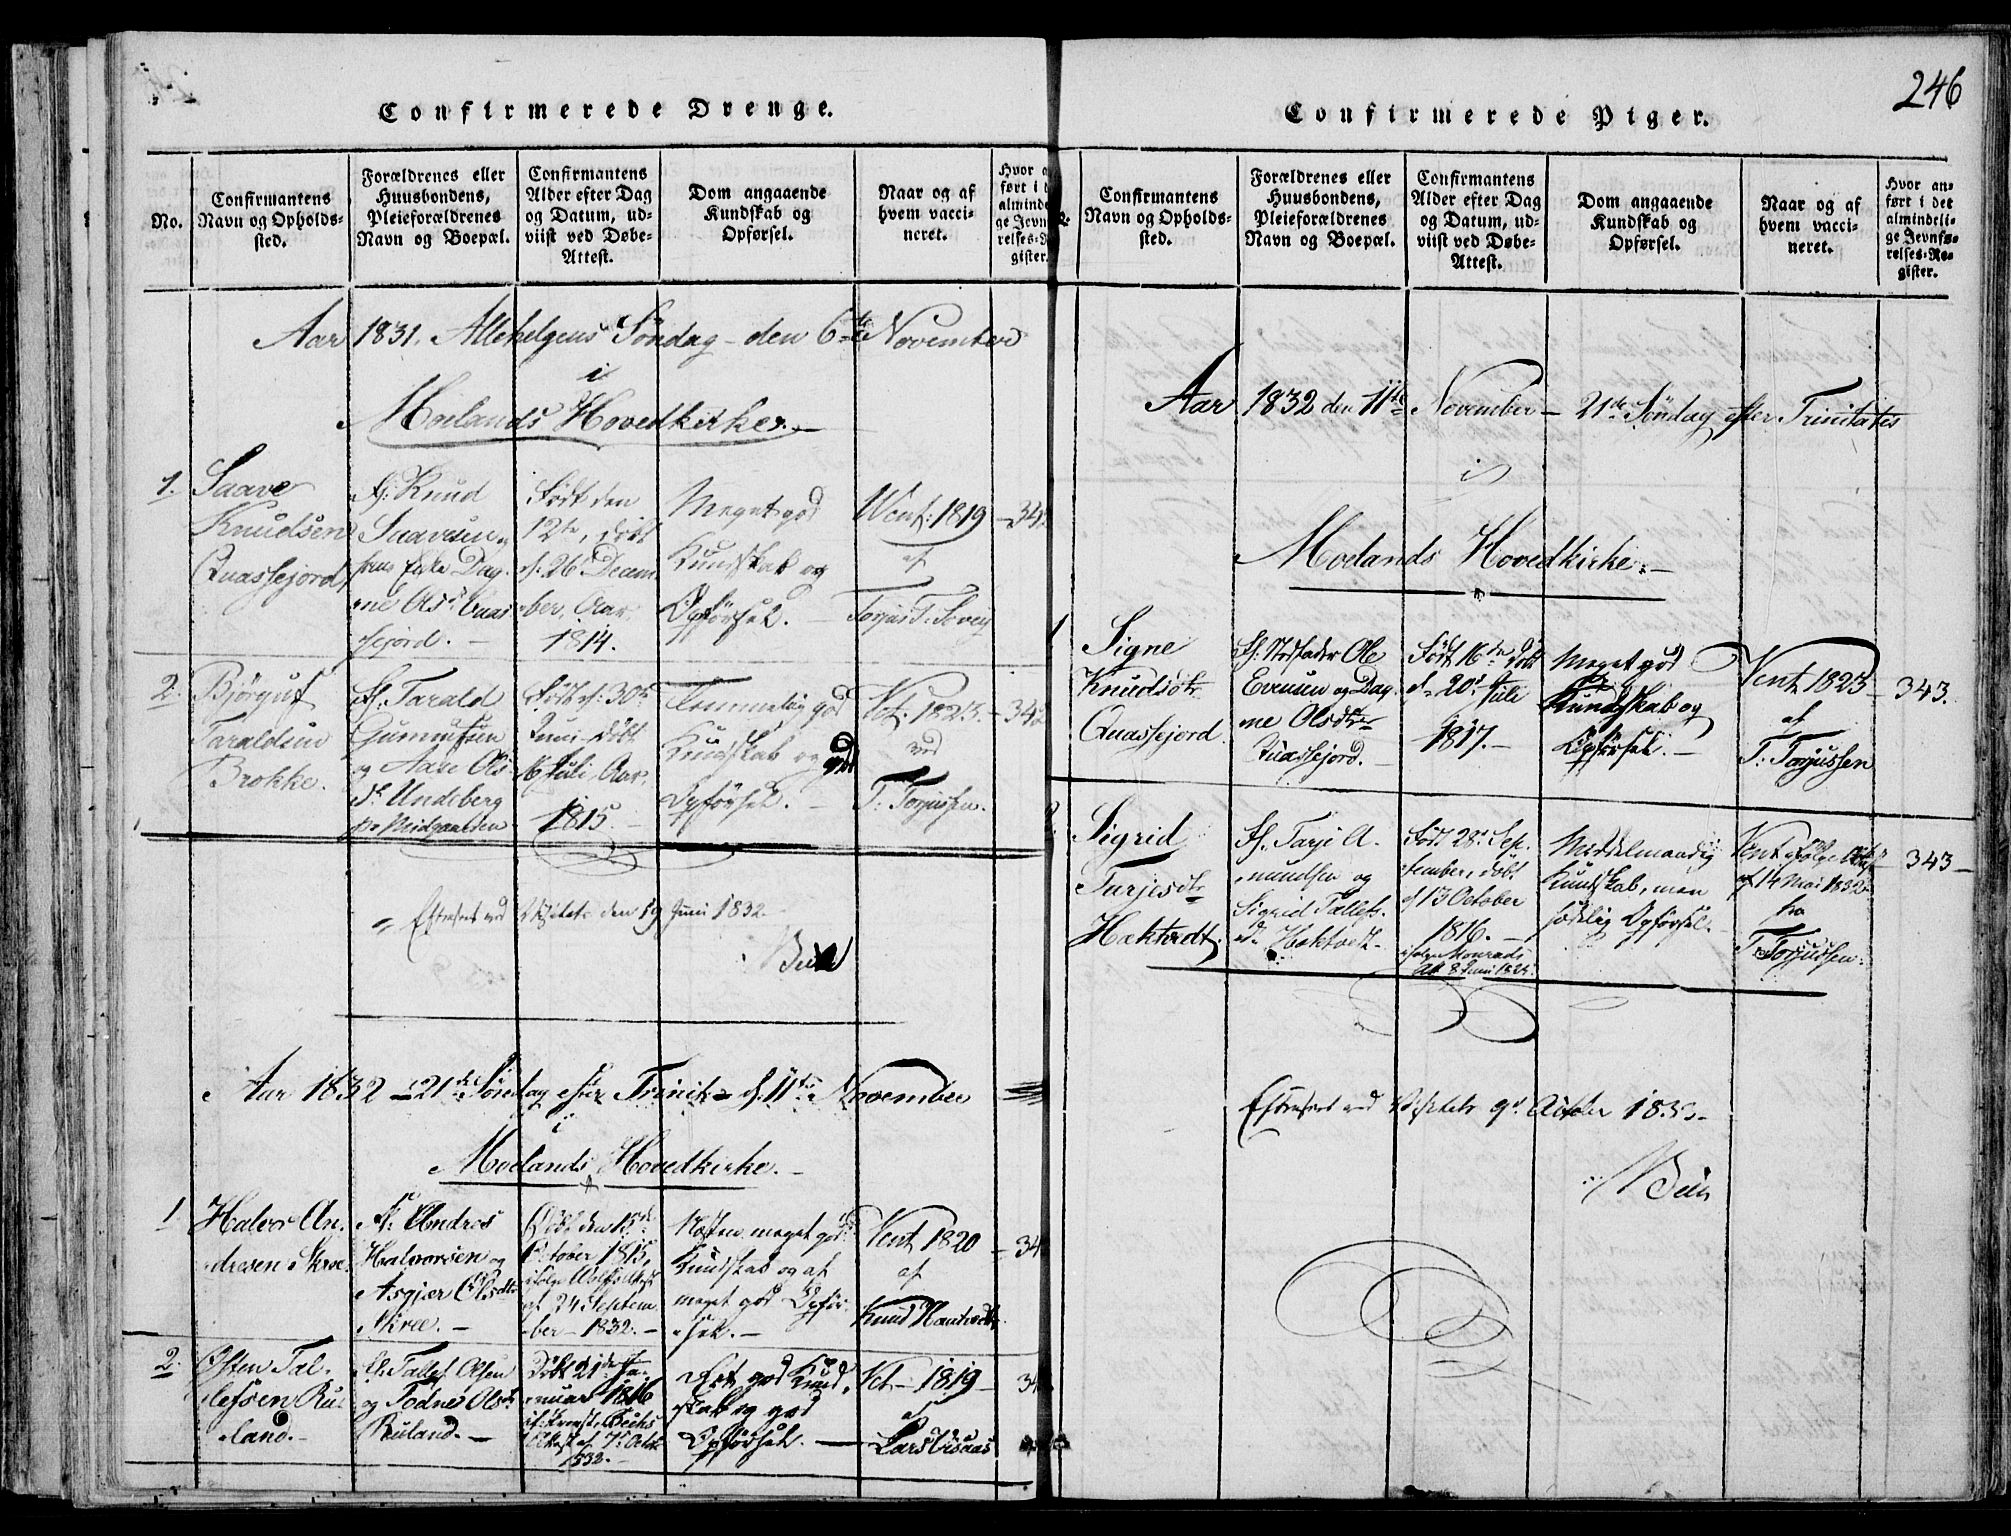 Confirmerede Drenge.
No.
Confirmantens
Navn og Opholds-
sted.
Forældrenes eller
Huusbondens,
Pleieforældrenes
Navn og Boepæl.
Confirmantens
Alder efter Dag
og Datum, ud-
viist ved Døbe-
Attest.
Dom angaaende
Kundskab og
Opførsel.
Naar og af
hvem vacci-
neret.
Hvor
ført i
alminde
ge Jevn
relses-
gister.
Aar 1831. Allehelgens Søndag - den 6te November
i
Moelands Hovedkirke.
1.
Saave
Knudsen
Quassejord,
F: Knud
Saavesen,
hans Enke Dag-
ne Olsd: Quas
sejord. -
Født den
12te, døbt
d. 26 Decem
ber, Aar
1814.
Meget god
Kundskab og
Opførsel. -
Vent: 1819
af
Torjus T. Sovey
34
2.
Bjørguf
Taraldsen
Brokke.
F. Tarald
Gunnufsen
og Aase Ols
dr Undeberg
Midgaarden
Født d: 30te
Juni døbt
16 Juli, Aar
1815. -
Temmelig god
Kundskab og god
Opførsel. -
Vct: 1823.
ved
T: Torjussen.
34
Efterseet ved Visitats den 19 Juni 1832.
Aar 1832 - 21de Søndag efter Trinit - d. 11te November
i
Moelands Hovedkirke. -
1
Halvor An-
dresen Skree
F: Andres
Halvorsen og
Asgjær Olsdtr
Skree. -
Døbt den 15de
October 1815,
ifølge Wolfs Attest
af 24 Septem
ber - 1832. -
Næsten meget god
Kundskab og af
meget god Opfør-
sel. -
Vent 1820
af
Knud Hautvedt
34
2.
Østen Tal-
lefsen Ru-
land. -
F. Tallef Olsen
og Todne Olsd
Ruland. -
Døbt 21de Ja-
nuar 1816
Attest af 7de Octob
1832. -
Ret god Kund-
skab og god
Opførsel. -
Vct - 1819
af
Lars Visaas
34
246
Confirmerede Piger.
Confirmantens
Navn og Opholds-
sted.
Forældrenes eller
Huusbondens,
Pleieforældrenes
Navn og Boepæl.
Confirmantens
Alder efter Dag
og Datum, ud-
viist ved Døbe-
Attest.
Dom angaaende
Kundskab og
Opførsel.
Naar og af
hvem vacci-
neret.
Hvor an-
ført i det
almindeli-
ge Jevnfø-
relses-Re-
gister.
Aar 1832 den 11te November - 21de Søndag efter Trinitatis
i
Moelands Hovedkirke. -
1
Signe
Knudsdtr
Quassejord
F: Stedfader Ole
Evensen og Dag
ne Olsdtr
Quassejord. -
Født 16de døbt
d. 20de Juli
1817. -
Meget god
Kundskab og
Opførsel. -
Vent 1823
af
T: Torjussen
343.
Sigrid
Turjesdtr
Haktvedt.
F. Tarje A-
mundsen og
Sigrid Tallefs-
d. Haktvedt. -
Fød. 28de Sep-
tember, døbt
d 13 October
1816. -
ifølge Monrads
Att. 8 Juni 1825
Middelmaadig
Kundskab, men
sædelig Opførsel. -
Vent ifølge Attest
af 14 Mai 1832
fra
T: Torjussen.
343 -
Efterseet ved Visitats 9de October 1833 -